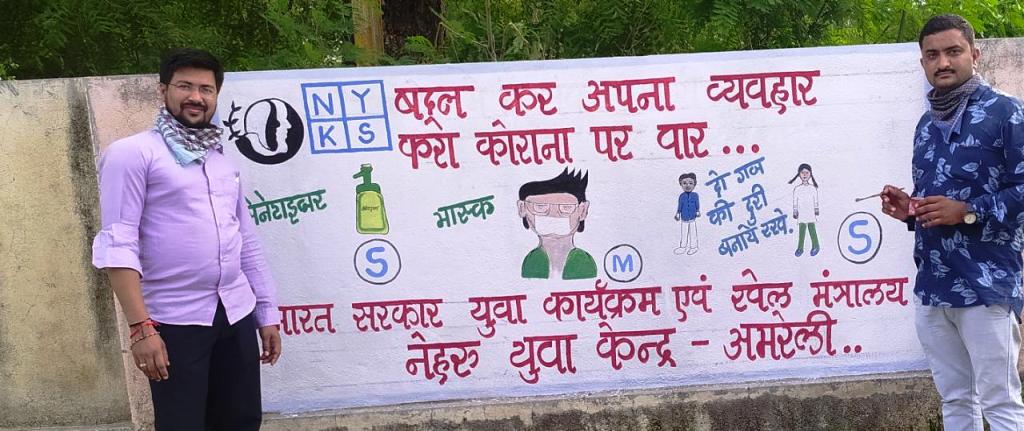 NY
KS
बदल कर अपना व्यवहार
करो कोराना पर वार...
मास्क
दो गज
की दुरी
बनायें रखे.
S
M
S
भारत सरकार युवा कार्यक्रम एवं खेल मंत्रालय
नेहरु युवा केन्द्र - अमरेली..